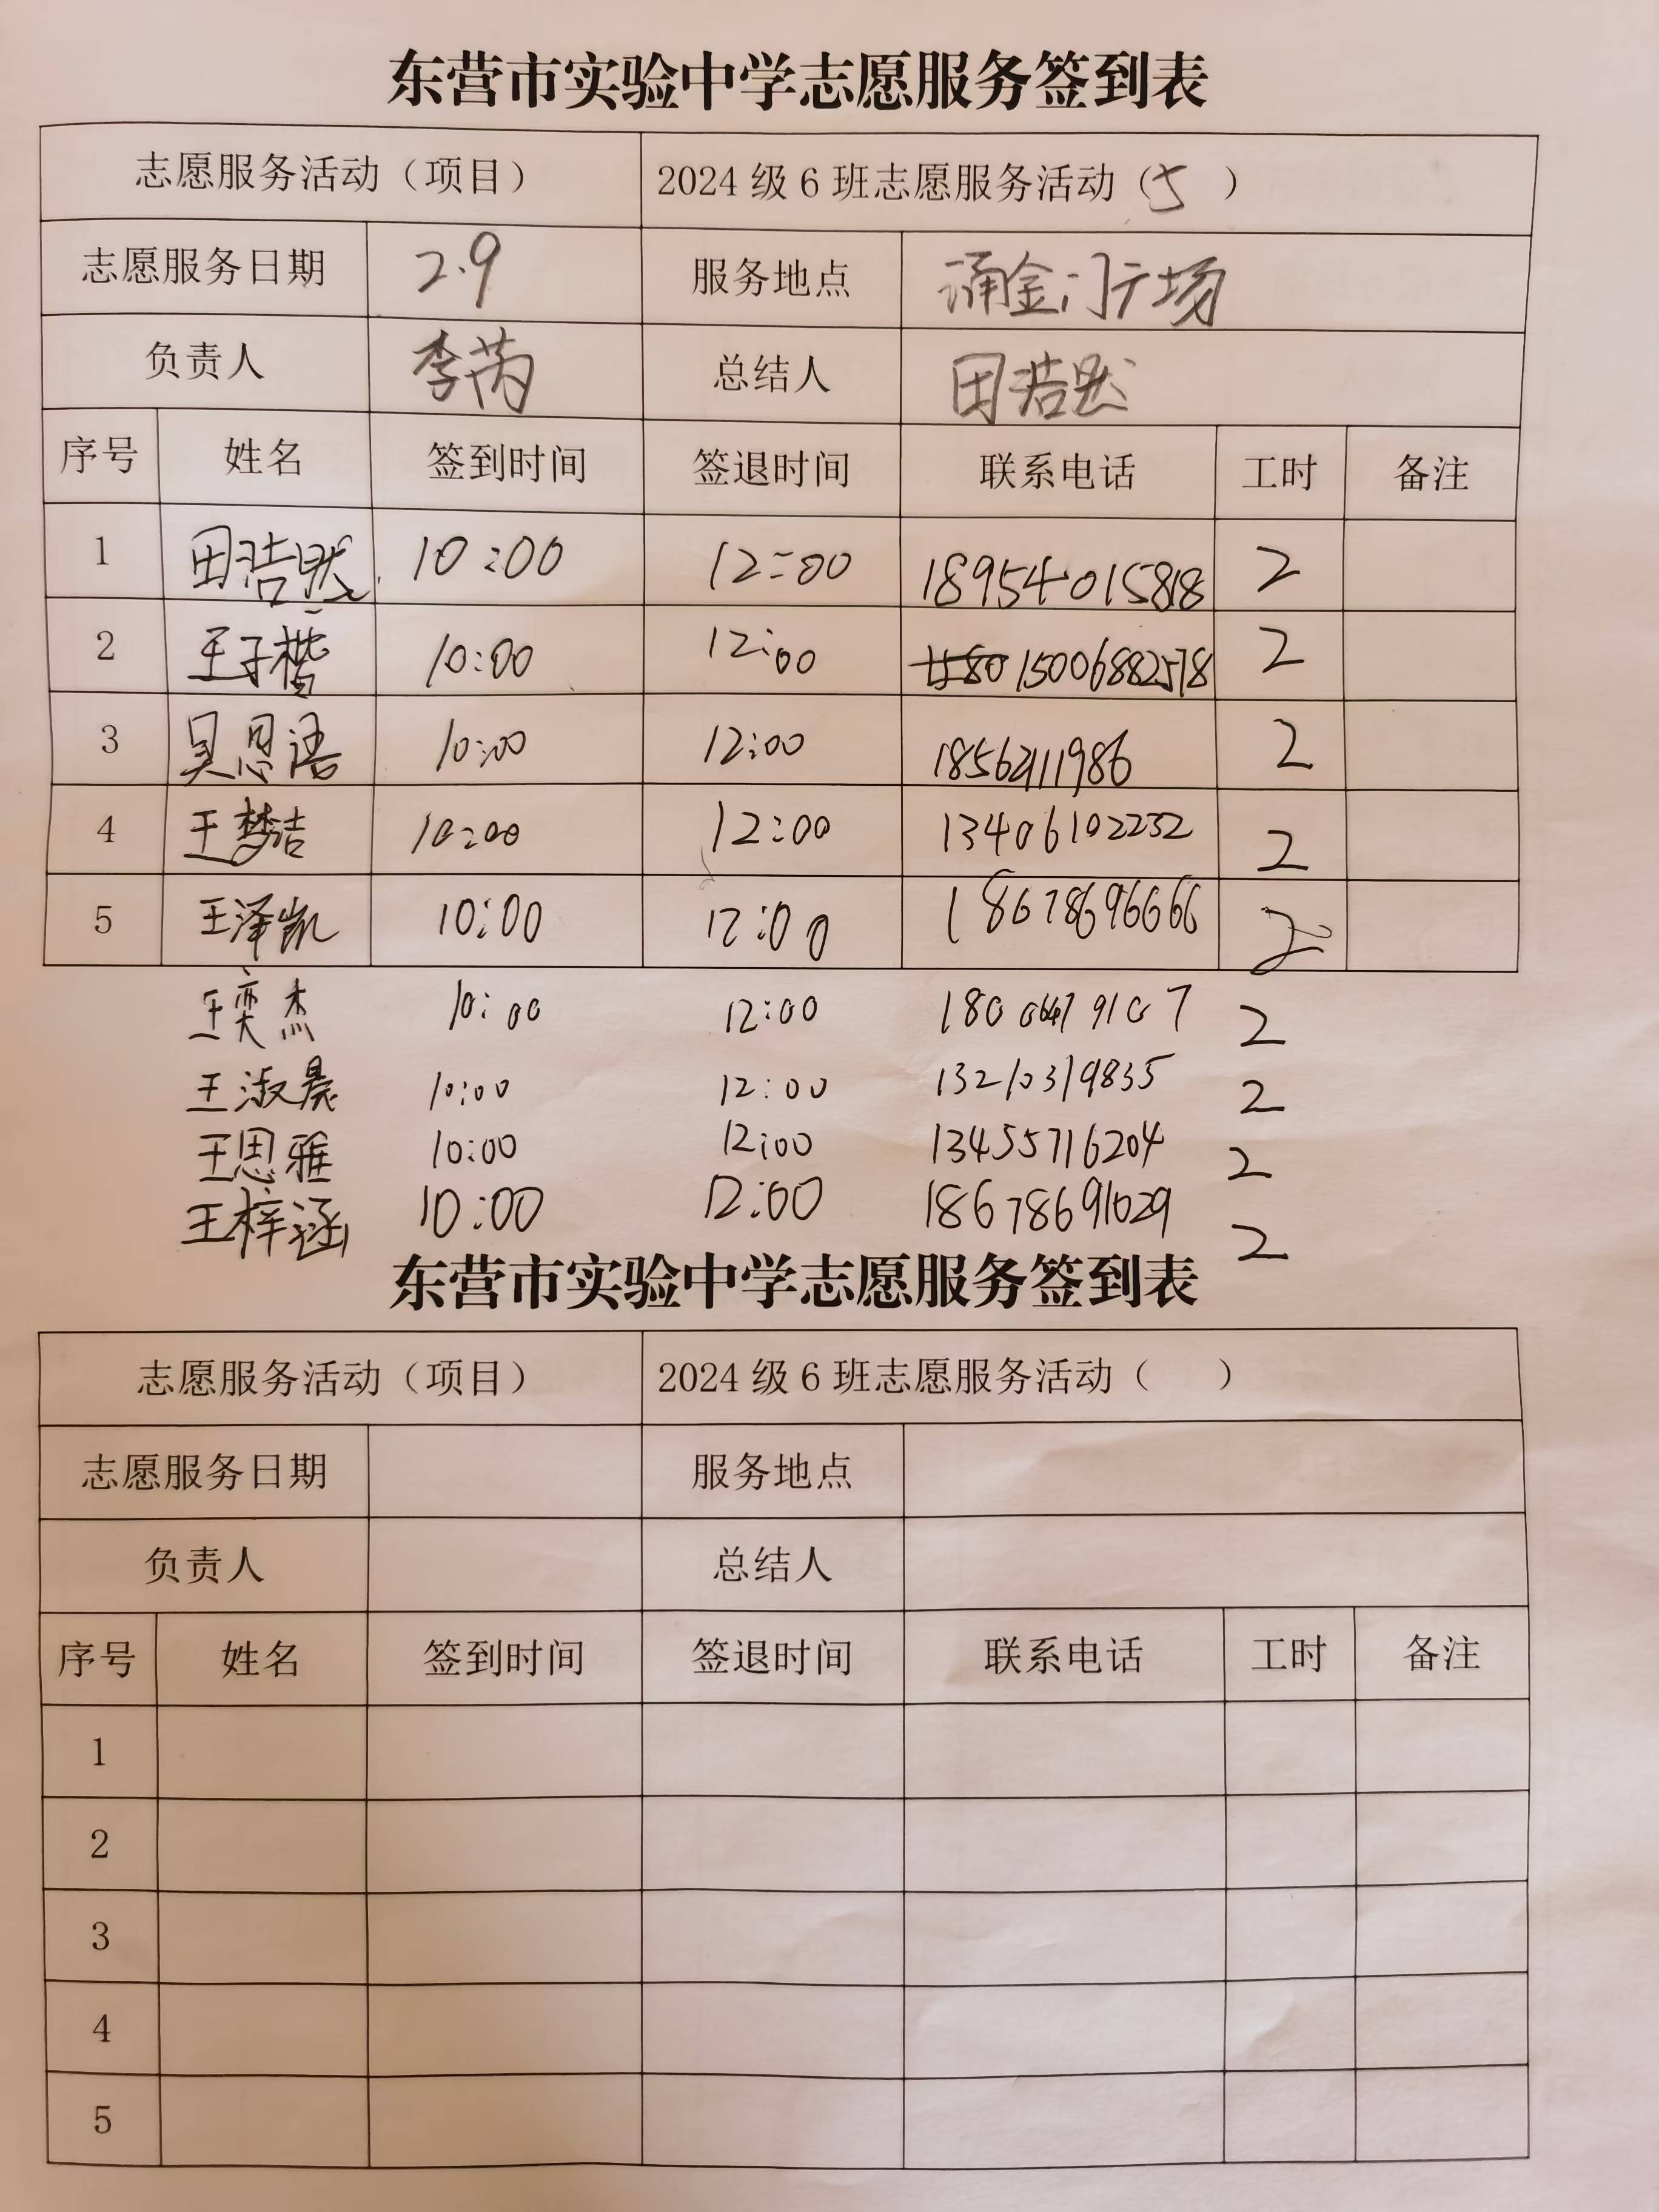 东营市实验中学志愿服务签到表
志愿服务活动（项目） 2024级6班志愿服务活动（5）
志愿服务日期 2.9 服务地点 涌金门广场
负责人 李芮 总结人 田浩然
序号 姓名 签到时间 签退时间 联系电话 工时 备注
1 田浩然 10:00 12:00 18954015818 2
2 王子楷 10:00 12:00 15006882578 2
3 吴恩语 10:00 12:00 2
4 王梦洁 10:00 12:00 13406102232 2
5 王泽凯 10:00 12:00 18678696666 2
王奕杰 10:00 12:00 2
王淑晨 10:00 12:00 13210319835 2
王思雅 10:00 12:00 13455716204 2
王梓涵 10:00 12:00 18678691029 2
东营市实验中学志愿服务签到表
志愿服务活动（项目） 2024级6班志愿服务活动（ ）
志愿服务日期 服务地点
负责人 总结人
序号 姓名 签到时间 签退时间 联系电话 工时 备注
1
2
3
4
5